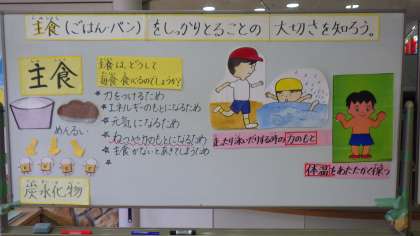 主食(ごはん・パン)をしっかりとることの大切さを知ろう。
主食
主食は、どうして
毎食食べるのでしょうか?
*力をつけるため
*エネルギーのもとになるため
*元気になるため
*ねつや力のもとになるため
*主食がないとあきてしまうため
*
めんるい
炭水化物
走ったり泳いだりする時の力のもと
体温をあたたかく保つ